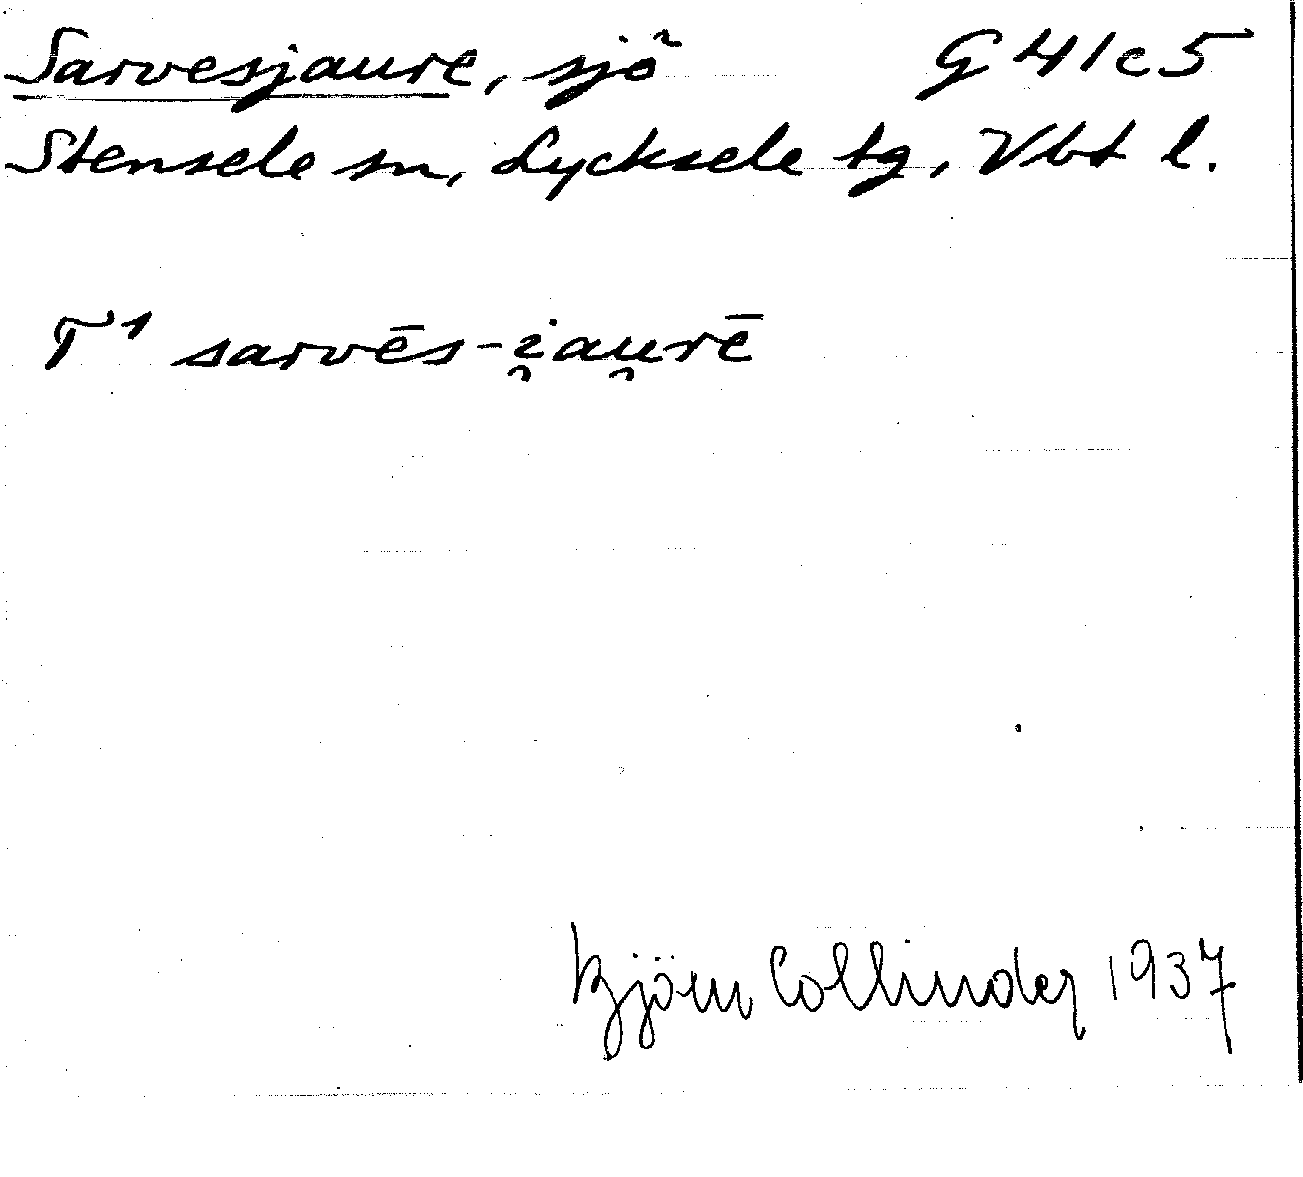 Sarvesjaure, sjö G41c5
Stensele sn, Lycksele tg, Vbt l.
T¹ sarvēs-i̯au̯rē
Björn Collinder 1937